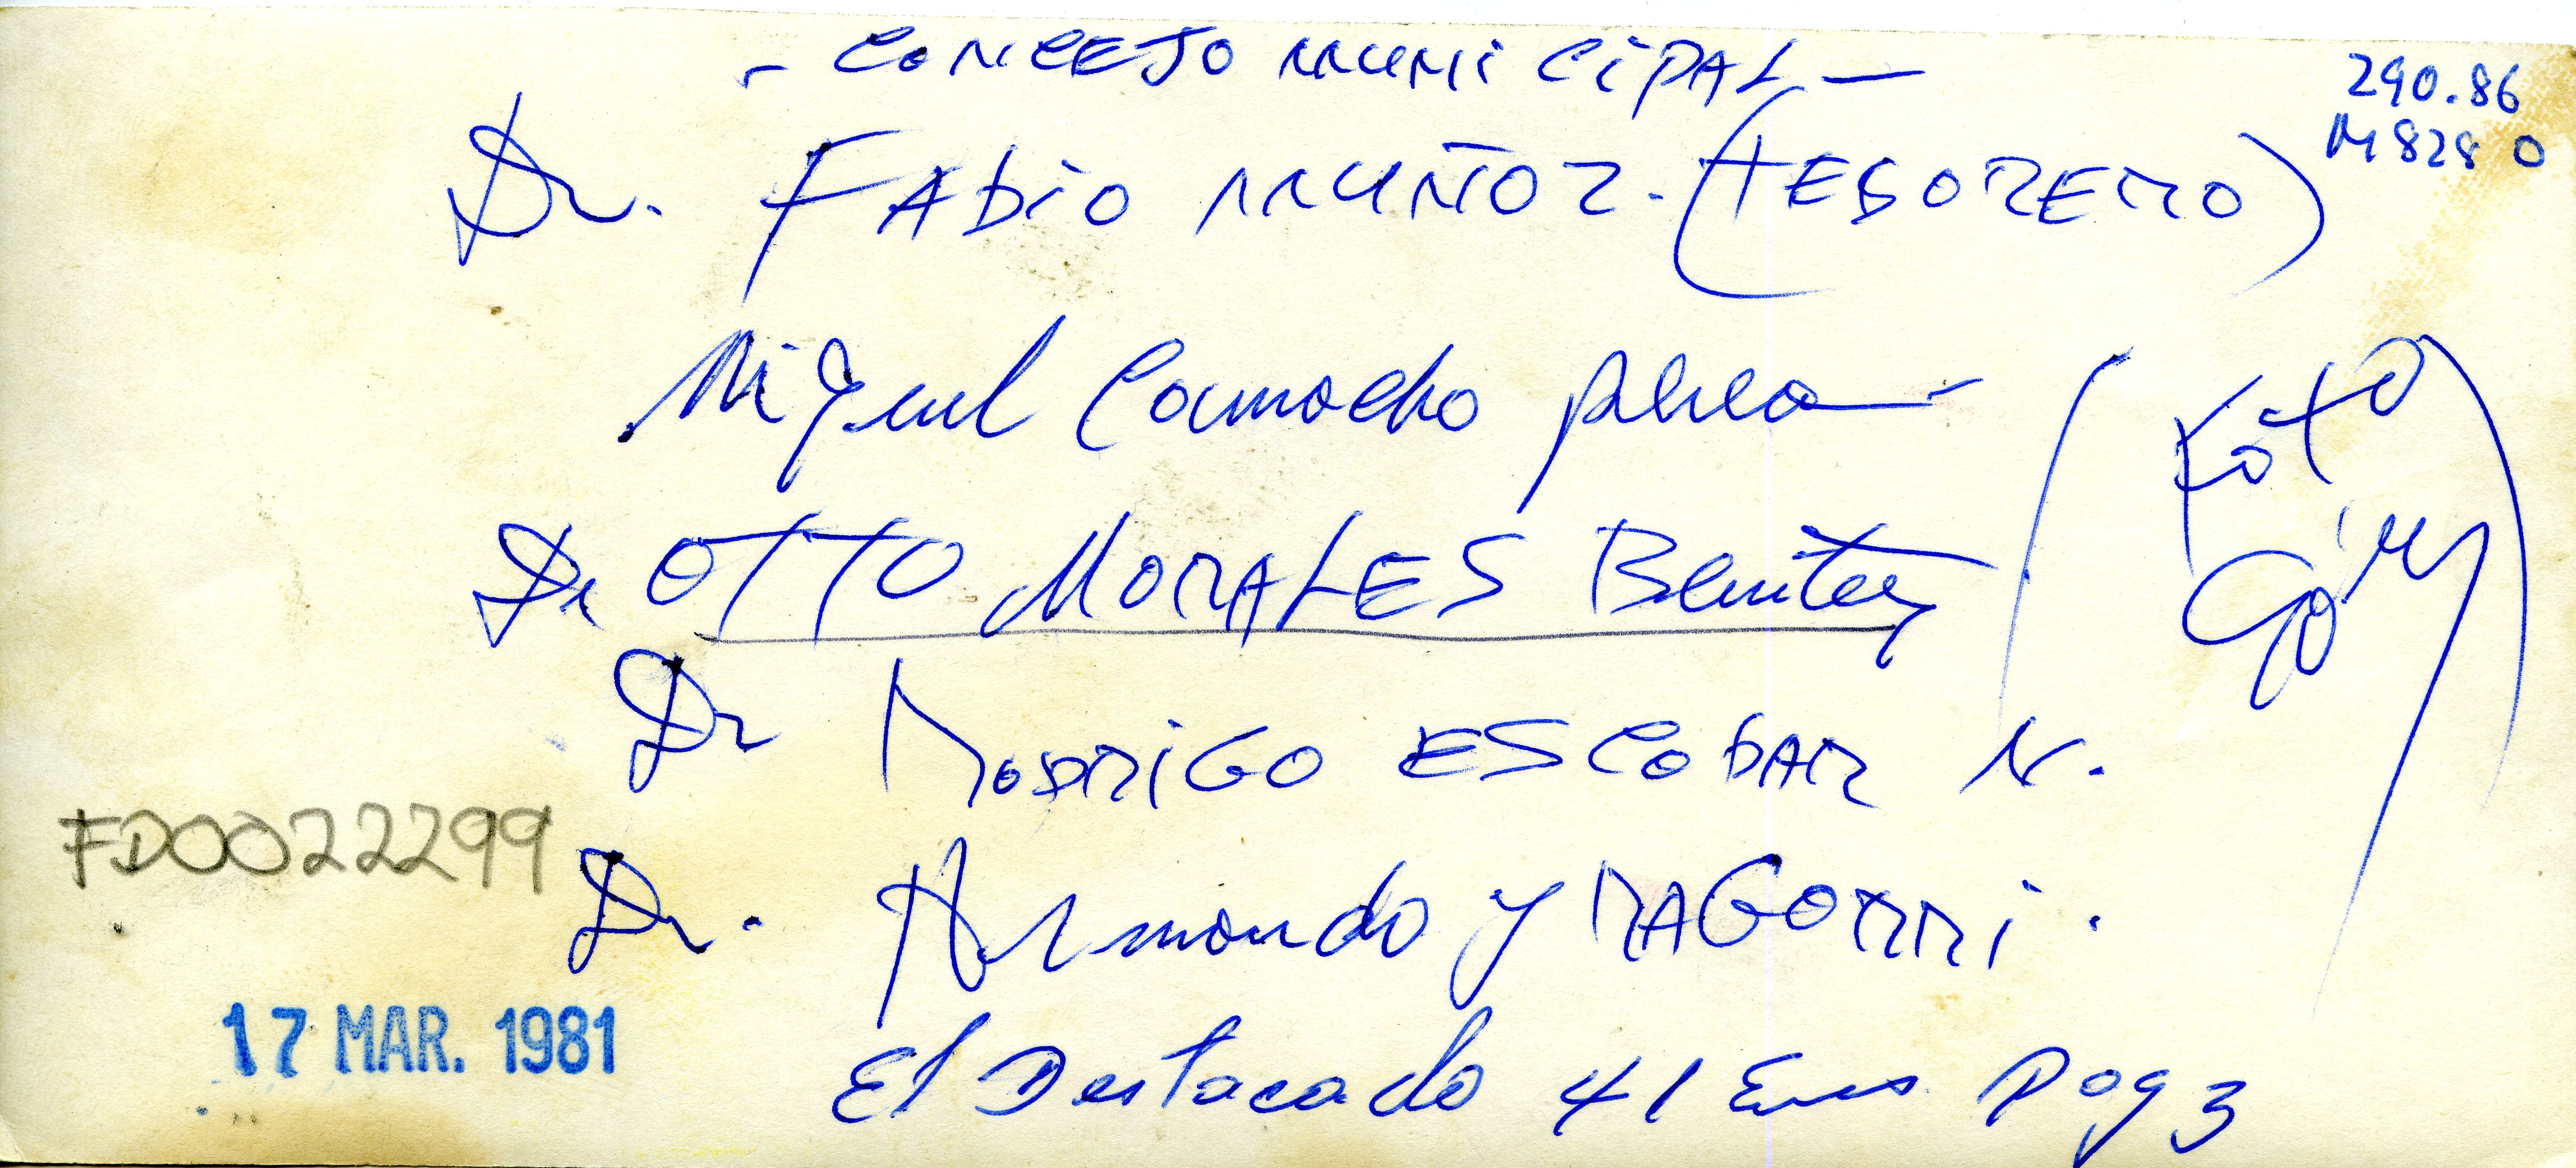 - CONCEJO MUNICIPAL -
290.86
M828 O
Dr. FABIO MUÑOZ. (TESORERO)
Miguel Camacho Perea
(Foto
Gómez)
Dr OTTO MORALES Benitez
Dr RODRIGO ESCOBAR N.
FD0022299
Dr. Armando YRAGORRI.
17 MAR. 1981
El Destacado 41 Ems Pag 3